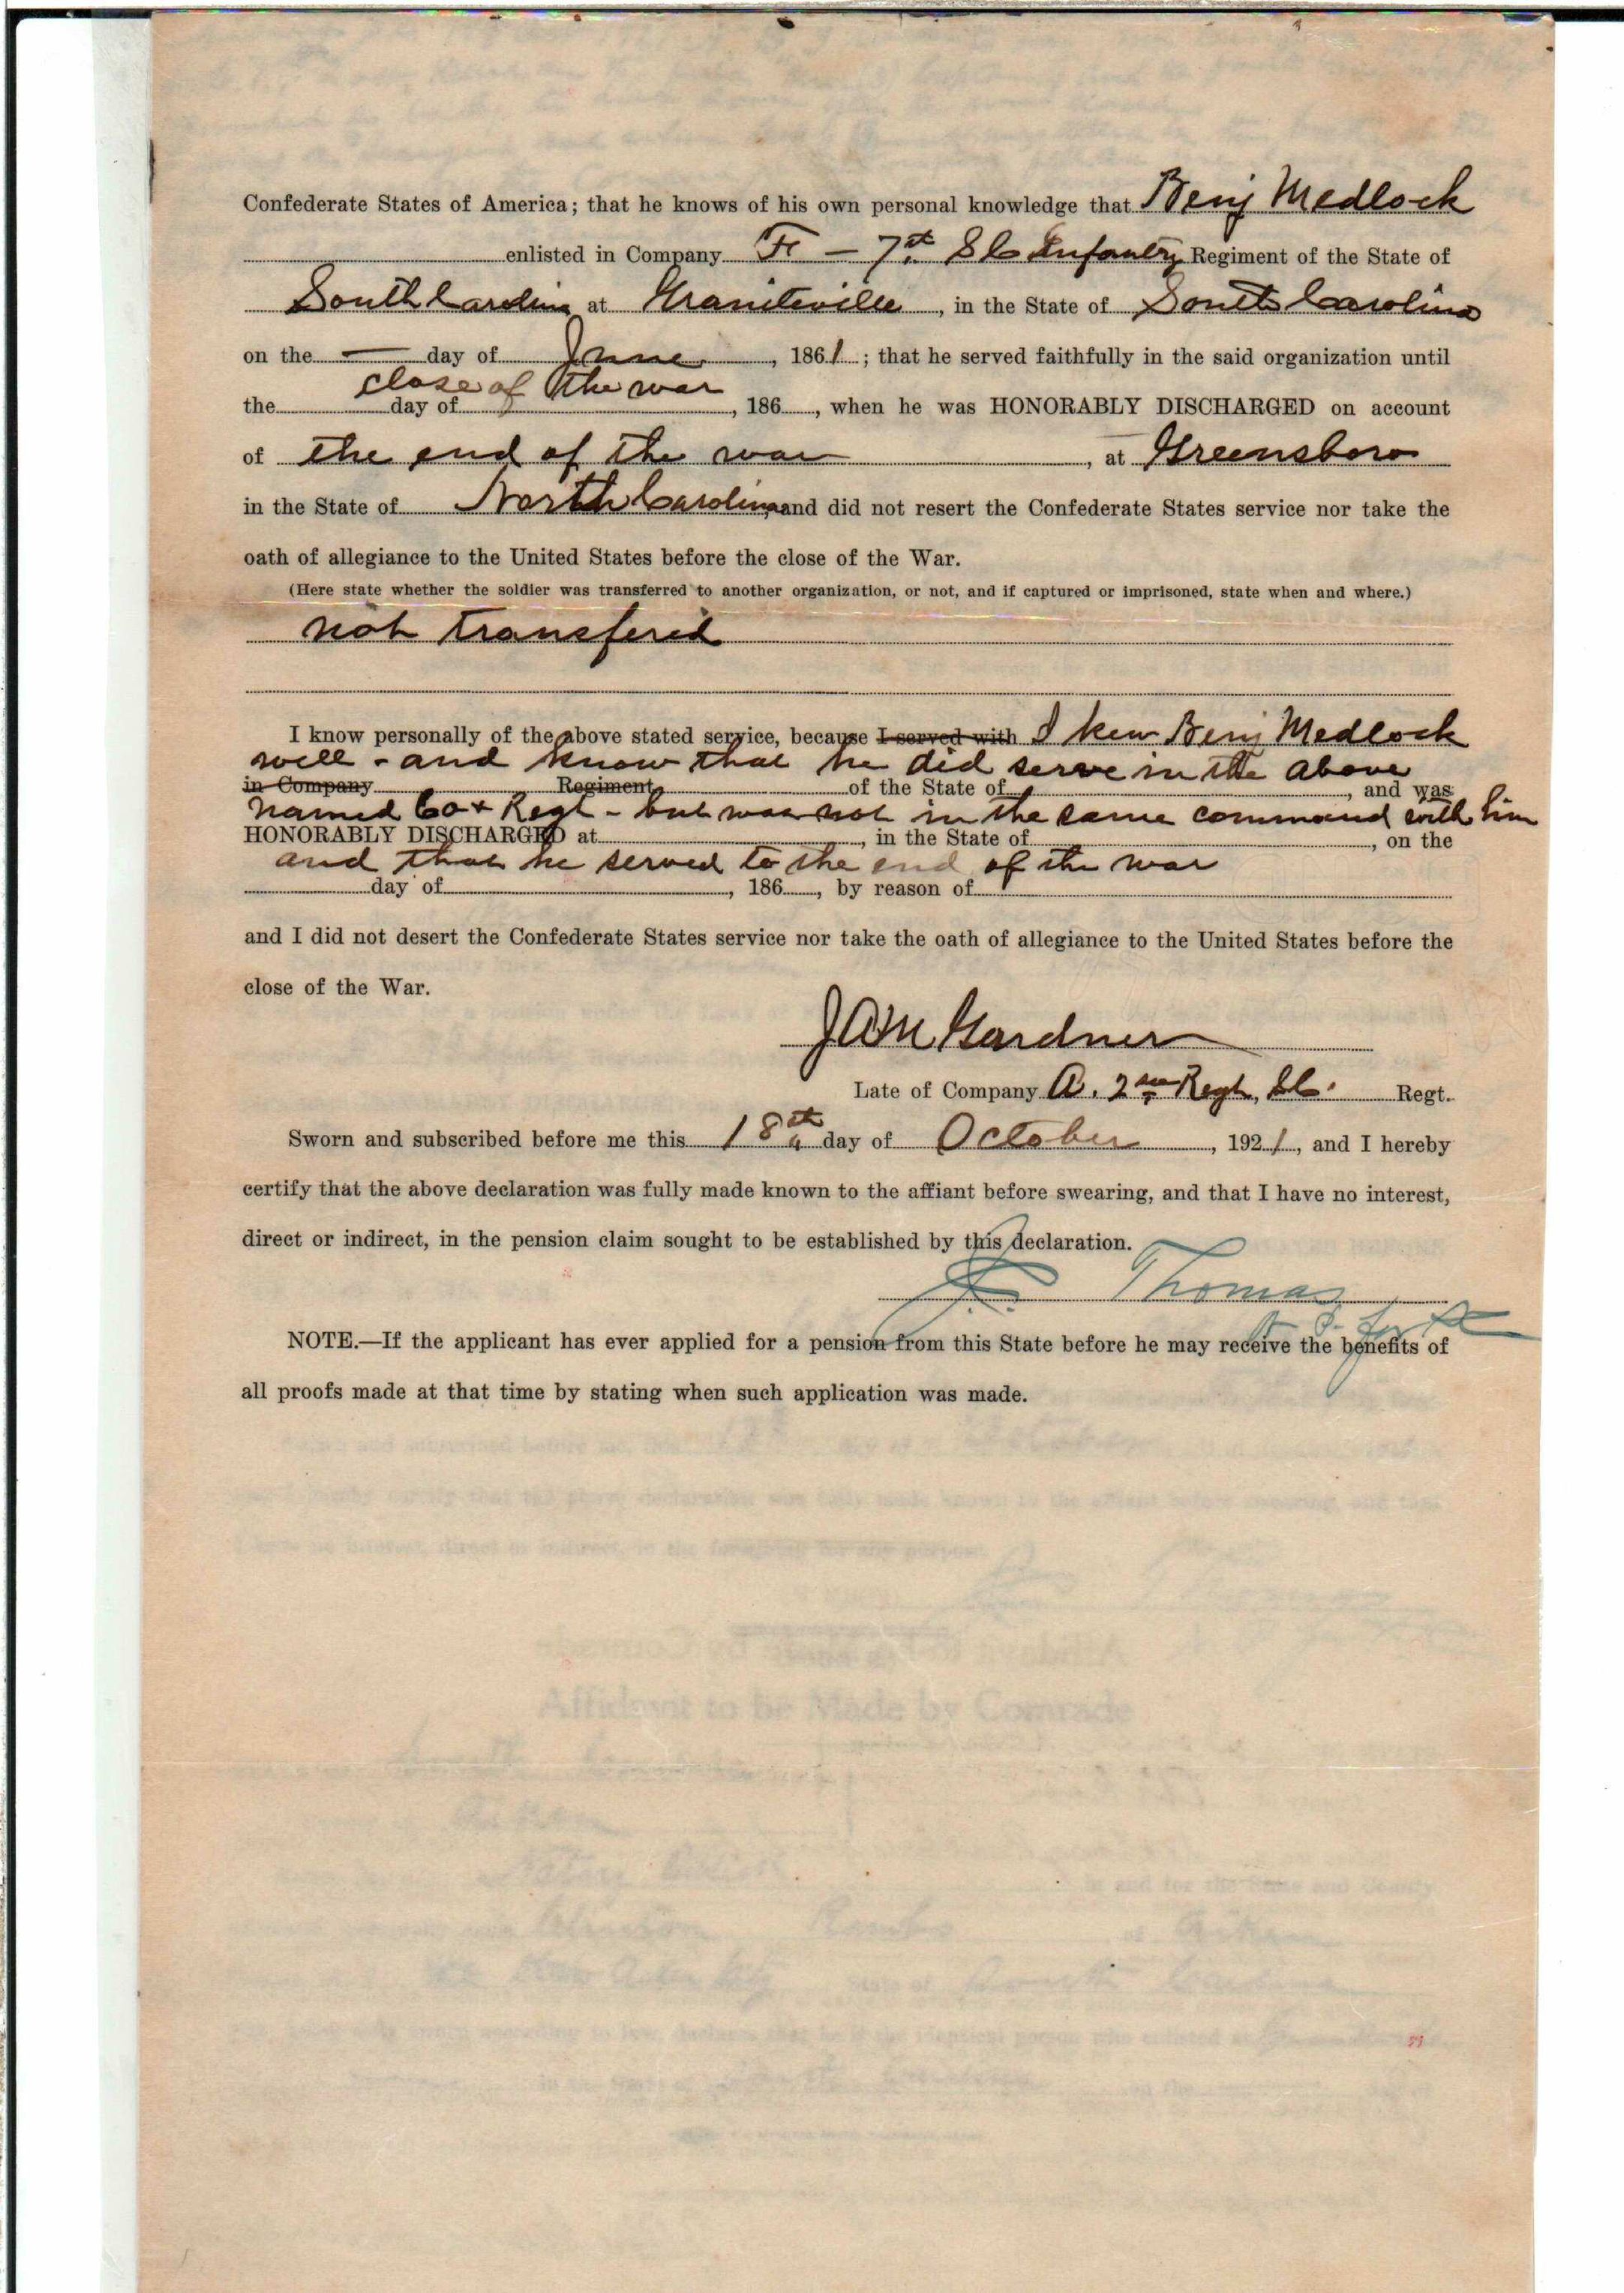 Confederate States of America; that he knows of his own personal knowledge that Benj Medlock
enlisted in Company F - 7th S C Infantry Regiment of the State of
South Carolina at Graniteville, in the State of South Carolina
on the — day of June, 1861; that he served faithfully in the said organization until
close of the war
the day of, 186, when he was HONORABLY DISCHARGED on account
of the end of the war, at Greensboro
in the State of North Carolina and did not resert the Confederate States service nor take the
oath of allegiance to the United States before the close of the War.
(Here state whether the soldier was transferred to another organization, or not, and if captured or imprisoned, state when and where.)
not transfered
I know personally of the above stated service, because I served with I kew Benj Medlock
well - and know that he did serve in the above
in Company Regiment of the State of, and was
named Co + Regt - but was not in the same command with him
HONORABLY DISCHARGED at, in the State of, on the
and that he served to the end of the war
day of, 186, by reason of
and I did not desert the Confederate States service nor take the oath of allegiance to the United States before the
close of the War.
JAM Gardner
Late of Company A. 2nd Regt, S.C. Regt.
Sworn and subscribed before me this 18th day of October, 1921, and I hereby
certify that the above declaration was fully made known to the affiant before swearing, and that I have no interest,
direct or indirect, in the pension claim sought to be established by this declaration.
Thomas
NOTE.—If the applicant has ever applied for a pension from this State before he may receive the benefits of
all proofs made at that time by stating when such application was made.
Affidavit to be Made by Comrade